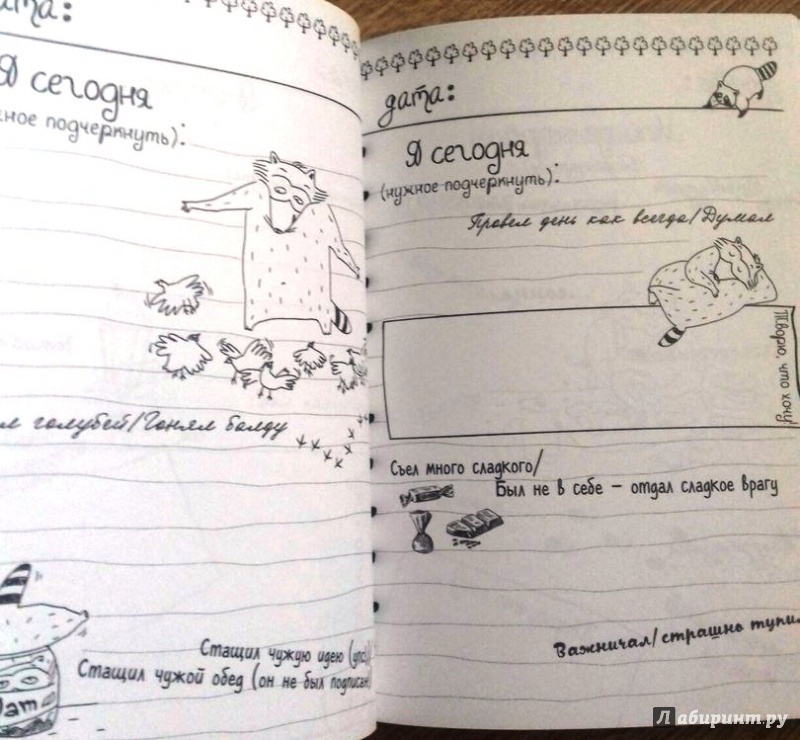 дата:
Я сегодня
нужное подчеркнуть):
голубей/Гонял балду
Стащил чужую идею (упс)/
Стащил чужой обед (он не был подписан)
Jam
дата:
Я сегодня
(нужное подчеркнуть):
Провел день как всегда/Думал
Творю, что хочу!
Съел много сладкого/
Был не в себе – отдал сладкое врагу
Важничал/страшно тупил
Лабиринт.ру